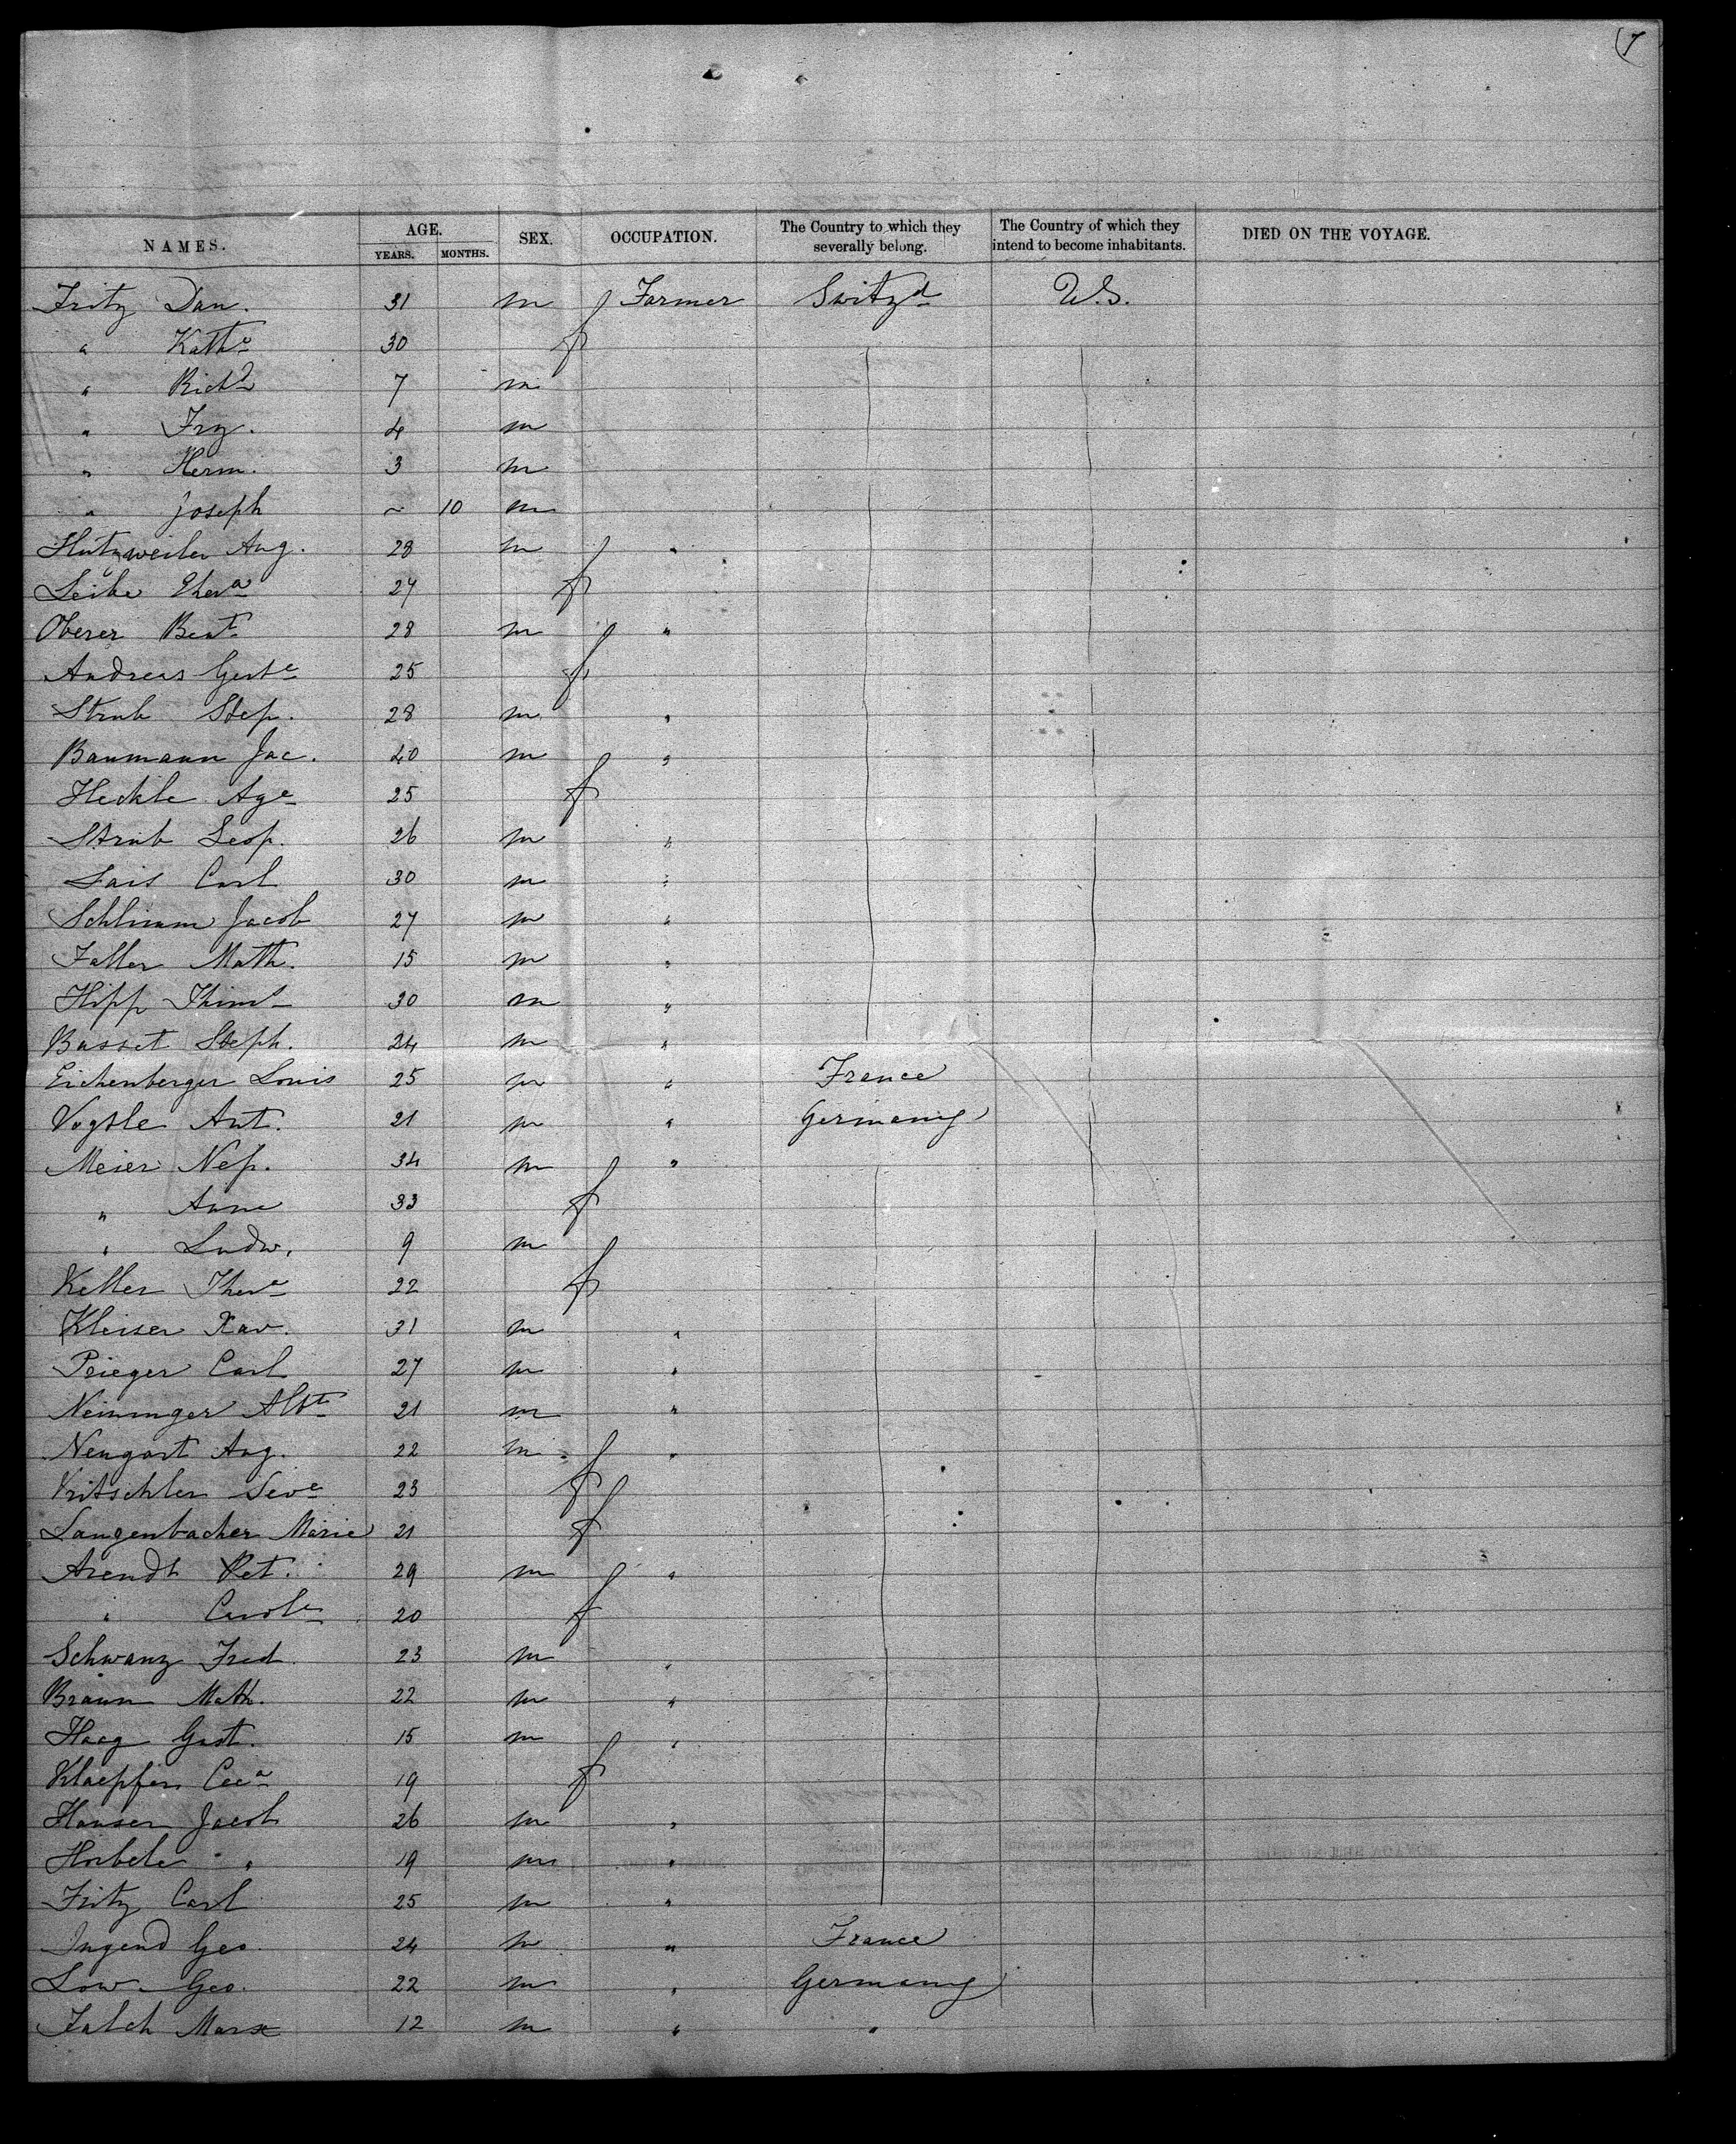 7
NAMES. AGE. YEARS. MONTHS. SEX. OCCUPATION. The Country to which they severally belong. The Country of which they intend to become inhabitants. DIED ON THE VOYAGE.
Fritz Dan. 31 m Farmer Switzd U.S.
" Kathe 30 f
" Richd 7 m
" Frz. 4 m
" Herm. 3 m
" Joseph ~ 10 m
Hutzweiler Aug. 28 m "
Leibe 27 f
Oberer Bent 28 m "
Andreas Gerte 25 f
Strub Step. 28 m "
Baumann Jac. 40 m "
Heckle Age 25 f
Strub Leop. 26 m "
Fais Carl 30 m "
Schlimm Jacob 27 m "
Faller Math. 15 m "
Hipp 30 m "
Busset Steph. 24 m "
Eichenberger Louis 25 m " France
Vogtle Ant. 21 m " Germany
Meier Nep. 34 m "
" Anna 33 f
" Ludw. 9 m
Keller Thera 22 f
Kleiser Xav. 31 m "
Prieger Carl 27 m "
Neininger Albt 21 m "
Neugart Aug. 22 m "
23 f
Langenbacher Marie 21 f
Arendt Pet. 29 m "
" Carole 20 f
Schwanz Fred. 23 m "
Braun Math. 22 m "
Haag Gust. 15 m "
Klaepfer Ceca 19 f
Hauser Jacob 26 m "
" 19 m "
Fritz Carl 25 m "
Jugend Geo. 24 m " France
Low Geo. 22 m " Germany
Falch Marx 12 m " "